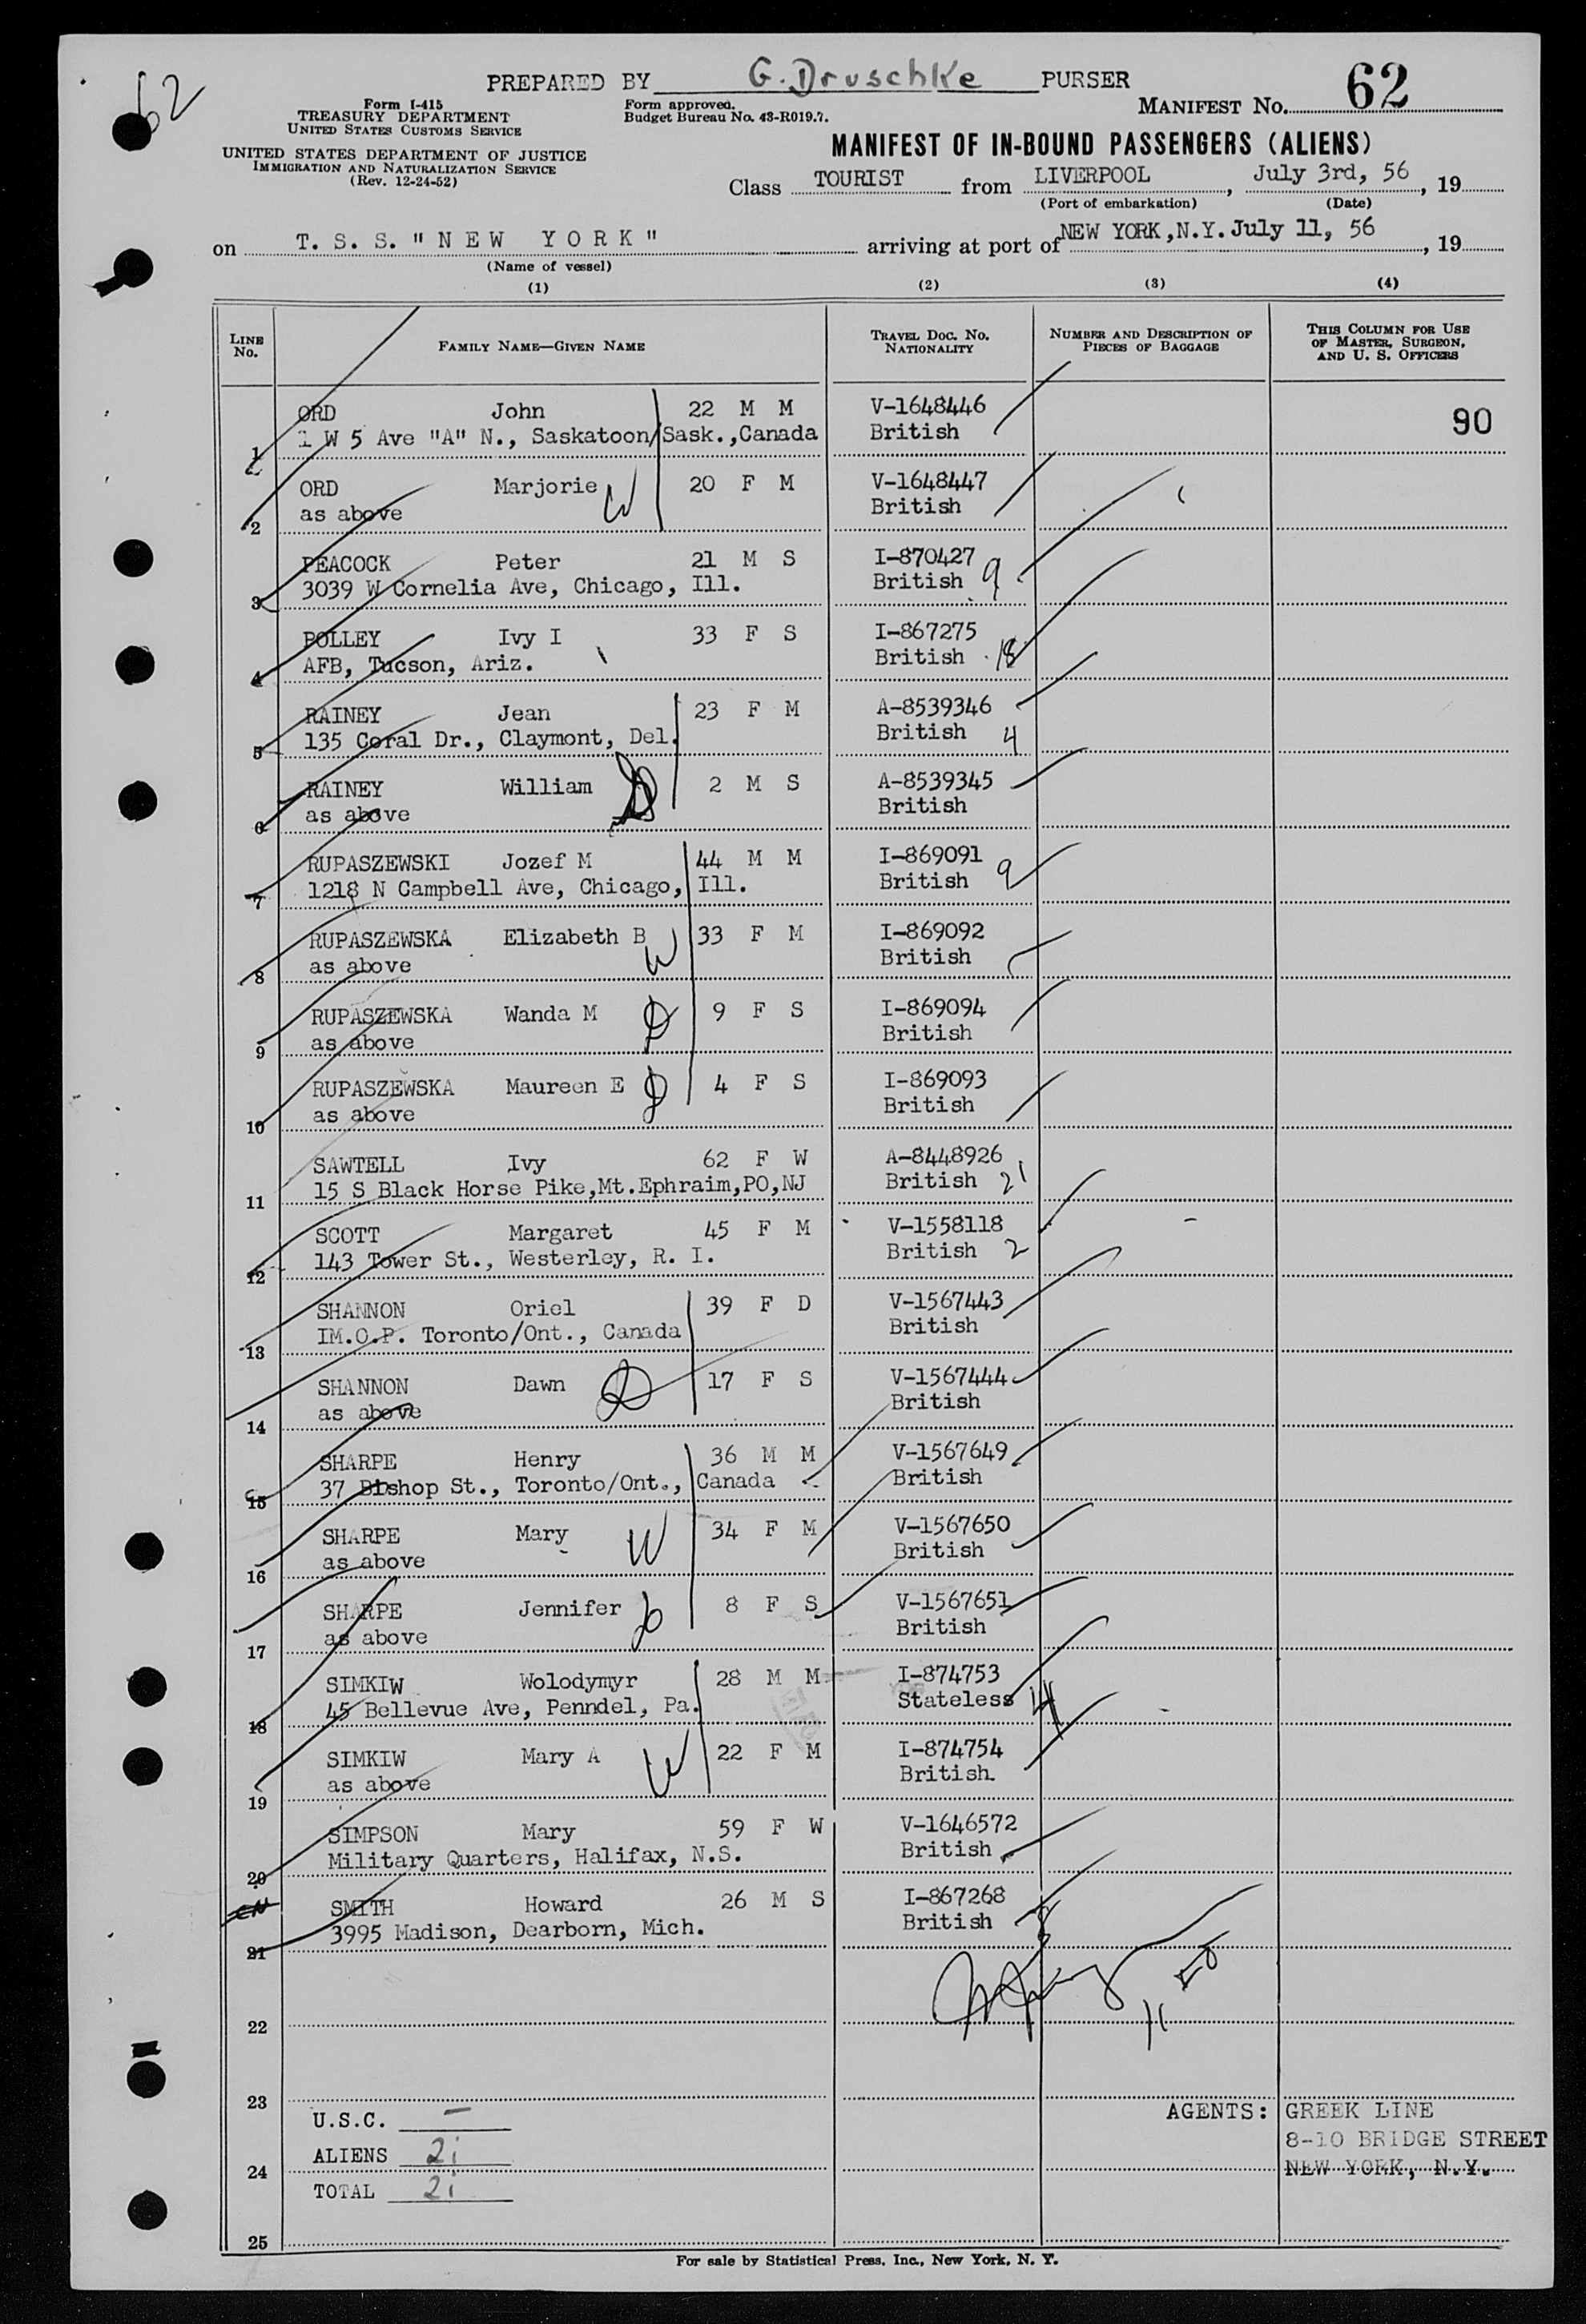 62
PREPARED BY G. Druschke PURSER
Form I-415
TREASURY DEPARTMENT
UNITED STATES CUSTOMS SERVICE
Form approved.
Budget Bureau No. 43-R019.7.
MANIFEST No. 62
UNITED STATES DEPARTMENT OF JUSTICE
IMMIGRATION AND NATURALIZATION SERVICE
(Rev. 12-24-52)
MANIFEST OF IN-BOUND PASSENGERS (ALIENS)
Class TOURIST from LIVERPOOL, July 3rd, 56, 19
(Port of embarkation) (Date)
on T. S. S. "NEW YORK" arriving at port of NEW YORK, N.Y. July 11, 56, 19
(Name of vessel)
(1) (2) (3) (4)
LINE No. FAMILY NAME—GIVEN NAME TRAVEL DOC. NO. NATIONALITY NUMBER AND DESCRIPTION OF PIECES OF BAGGAGE THIS COLUMN FOR USE OF MASTER, SURGEON, AND U. S. OFFICERS
ORD John 22 M M V-1648446 90
1 1 W 5 Ave "A" N., Saskatoon/Sask.,Canada British
ORD Marjorie W 20 F M V-1648447
2 as above British
PEACOCK Peter 21 M S I-870427
3 3039 W Cornelia Ave, Chicago, Ill. British 9
POLLEY Ivy I 33 F S I-867275
4 AFB, Tucson, Ariz. British 18
RAINEY Jean 23 F M A-8539346
5 135 Coral Dr., Claymont, Del. British 4
RAINEY William 2 M S A-8539345
6 as above British
RUPASZEWSKI Jozef M 44 M M I-869091
7 1218 N Campbell Ave, Chicago, Ill. British 9
RUPASZEWSKA Elizabeth B W 33 F M I-869092
8 as above British
RUPASZEWSKA Wanda M 9 F S I-869094
9 as above British
RUPASZEWSKA Maureen E 4 F S I-869093
10 as above British
SAWTELL Ivy 62 F W A-8448926
11 15 S Black Horse Pike,Mt.Ephraim,PO,NJ British 21
SCOTT Margaret 45 F M V-1558118
12 143 Tower St., Westerley, R. I. British 2
SHANNON Oriel 39 F D V-1567443
13 IM.O.P. Toronto/Ont., Canada British
SHANNON Dawn D 17 F S V-1567444
14 as above British
SHARPE Henry 36 M M V-1567649
15 37 Bishop St., Toronto/Ont., Canada British
SHARPE Mary W 34 F M V-1567650
16 as above British
SHARPE Jennifer 8 F S V-1567651
17 as above British
SIMKIW Wolodymyr 28 M M I-874753
18 45 Bellevue Ave, Penndel, Pa. Stateless 14
SIMKIW Mary A W 22 F M I-874754
19 as above British.
SIMPSON Mary 59 F W V-1646572
20 Military Quarters, Halifax, N.S. British
SMITH Howard 26 M S I-867268
21 3995 Madison, Dearborn, Mich. British 8
22
23
U.S.C. — AGENTS: GREEK LINE
ALIENS 21 8-10 BRIDGE STREET
24 NEW YORK, N.Y.
TOTAL 21
25
For sale by Statistical Press, Inc., New York, N. Y.